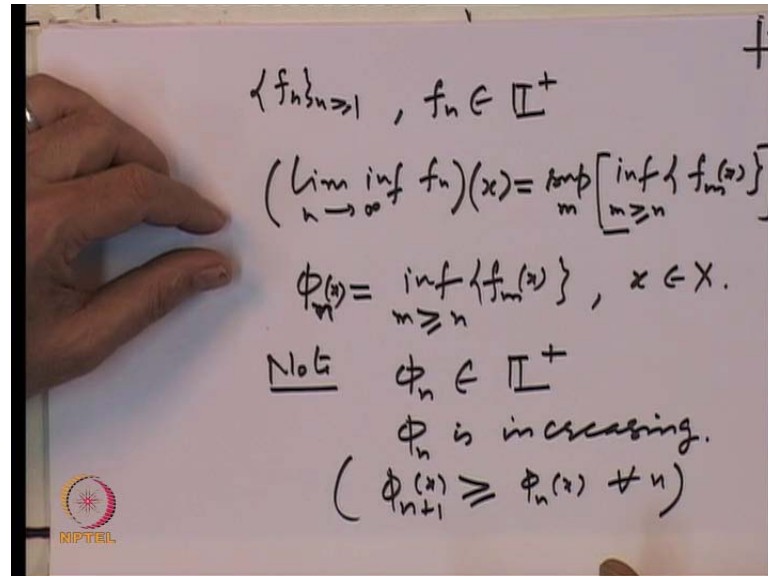 {fn}n≥1 , fn ∈ 𝕃⁺
(lim inf fn)(x) = sup [inf { fm(x)}]
n → ∞ m m ≥ n
ϕm(x) = inf {fm(x)} , x ∈ X.
m ≥ n
Note ϕn ∈ 𝕃⁺
ϕn is increasing.
( ϕn+1(x) ≥ ϕn(x) ∀ n)
NPTEL